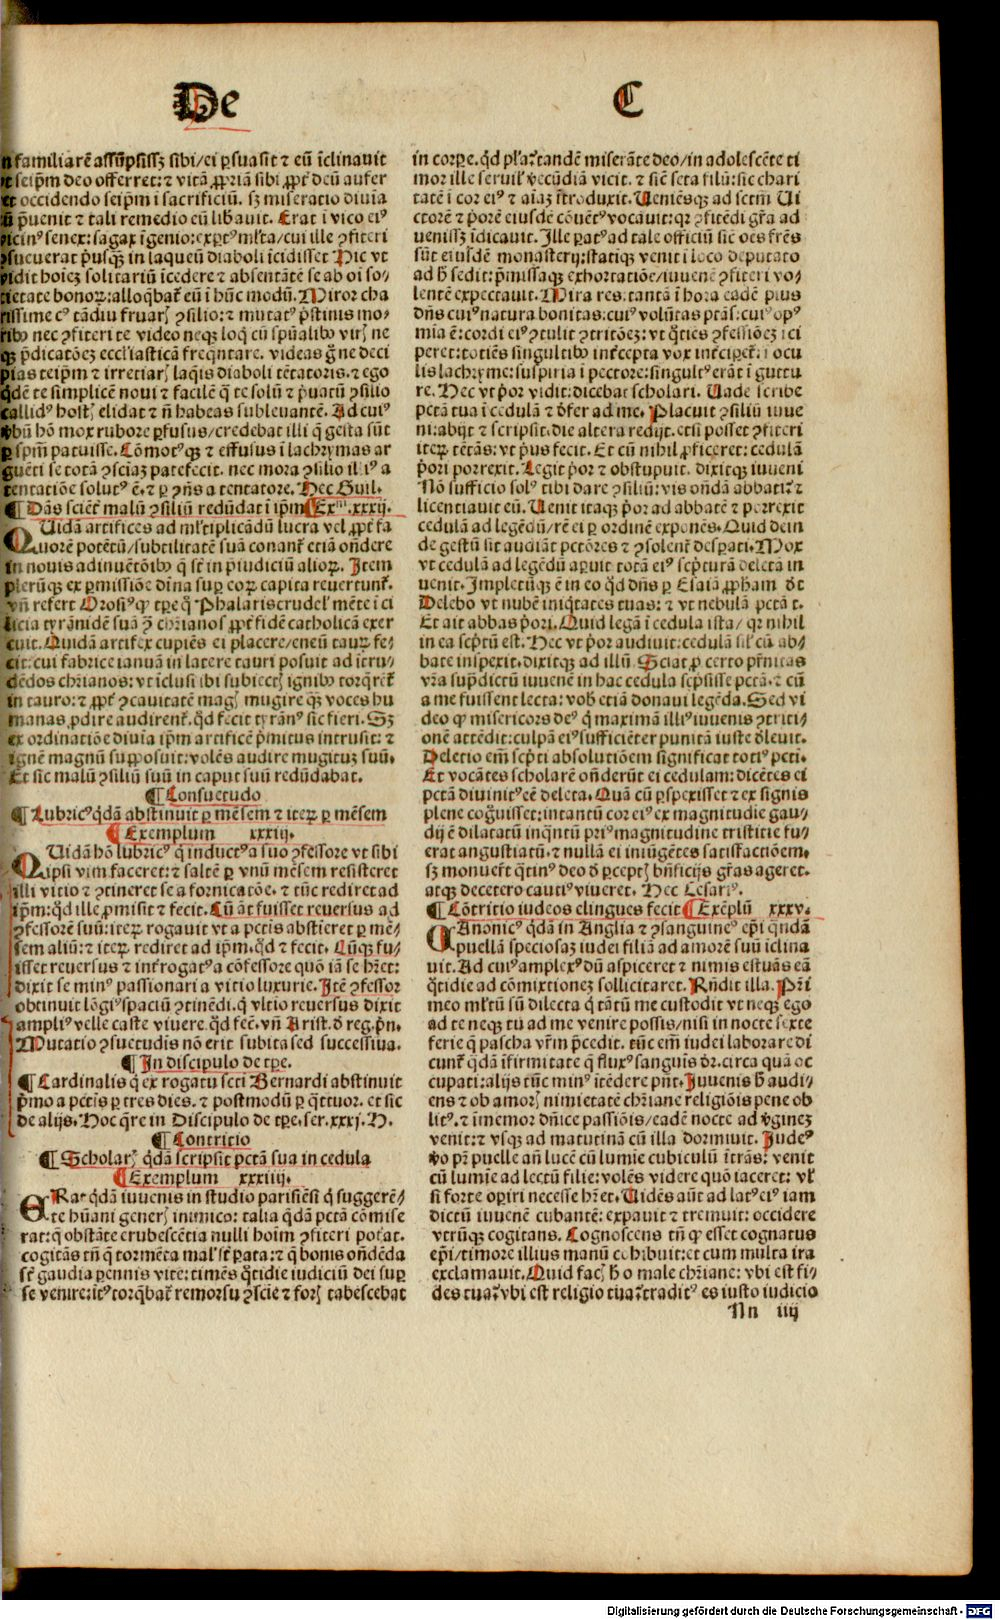 De
C
familiarē assūpsissꝫ sibi/ei ꝑsuasit ⁊ eū īclinauit
seip̄m deo offerret:⁊ vitā ꝓpriā sibi ꝓpt̄ deū aufer
occidendo seip̄m ī sacrificiū. sꝫ miseratio diuia
p̄uenit ⁊ tali remedio eū lib̄auit. Erat ī vico eiꝰ
senex:sagax īgenio:expertꝰ ml̄ta/cui ille ꝯfiteri
ꝯsueuerat p̄usqꝫ in laqueū diaboli īcidisset Hic vt
vidit hoīeꝫ solitariū īcedere ⁊ absentātē se ab oī so-
cietate bonoꝝ:alloq̄bat̄ eū ī hūc modū. Miror cha
rissime cꝰ tādiu fruarꝭ ꝯsilio:⁊ mutatꝰ p̄stinis mo/
ribꝰ nec ꝯfiteri te video neqꝫ loq̄ cū spūalibꝰ virꝭ ne
qꝫ p̄dicatōeꝫ eccl̓iasticā freq̄ntare. videas ḡ ne deci
pias teip̄m ⁊ irretiarꝭ laq̄is diaboli tētatoris.⁊ ego
q̄dē te simplicē noui ⁊ facilē q̄ te solū ⁊ p̄uatū ꝯsilio
callidꝰ hostꝭ elidat ⁊ n̄ habeas subleuantē. Ad cuiꝰ
v̄bū hō mox rubore ꝑfusus/credebat illi q̄ gesta sūt
ꝑ spm̄ patuisse. Cōmotꝰqꝫ ⁊ effusus ī lachrymas ar
guēti se totā ꝯsciaꝫ patefecit. nec mora ꝯsilio illiꝰ a
tentatiōe solutꝰ ē.⁊ ꝑ ꝯn̄s a tentatore. Hec Guil.
¶ Dās sciēt̄ malū ꝯsiliū redūdat ī ip̄m ¶Exᵐ.xxxij.
QUidā artifices ad ml̄tiplicādū lucra vel ꝓpt̄ fa
uorē potētū/subtilitatē suā conant̄ etiā on̄dere
in nouis adinuētōibꝰ q̄ st̄ in p̄iudiciū alioꝝ. Item
plerūqꝫ ex ꝑmissiōe diuīa suꝑ eoꝝ capita reuertunt̄.
vn̄ refert Orosiꝰ ꝙ tꝑe q̄ Phalaris crudel̓ mēte ī ci
licia tyrānidē suā ꝯ̄ chr̄ianos ꝓpt̄ fidē catholicā exer
cuit. Quidā artifex cupiēs ei placere/eneū tauꝝ fe/
cit:cui fabrice ianuā in latere tauri posuit ad ītru/
dēdos chr̄ianos:vt īclusi ibi subiectꝭ ignibꝰ torq̄rēt̄
in tauro:⁊ ꝓpt̄ ꝯcauitatē magꝭ mugire q̄ꝫ voces hu
manas ꝓdire audirent̄. q̄d fecit tyrānꝰ sic fieri. Sꝫ
ex ordinatiōe diuīa ip̄m artificē p̄mitus intrusit:⁊
ignē magnū supposuit:volēs audire mugituꝫ suū.
Et sic malū ꝯsiliū suū in caput suū redūdabat.
¶ Consuetudo
¶ Lubricꝰ q̄dā abstinuit ꝑ mēsem ⁊ iteꝝ ꝑ mēsem
¶ Exemplum xxxiij.
QUidā hō lubricꝰ q̄ inductꝰ a suo ꝯfessore vt sibi
ipsi vim faceret:⁊ saltē ꝑ vnū mēsem resisteret
illi vitio ⁊ ꝯtineret se a fornicatōe.⁊ tūc rediret ad
ip̄m:q̄d ille ꝓmisit ⁊ fecit. Cū āt fuisset reuersus ad
ꝯfessorē suū:iteꝝ rogauit vt a pctis abstieret ꝑ mē/
sem aliū:⁊ iteꝝ rediret ad ip̄m.q̄d ⁊ fecit. Cūqꝫ fu/
isset reuersus ⁊ int̄rogatꝰ a cōfessore quō iā se hr̄et:
dixit se minꝰ passionari a vitio luxurie. Itē ꝯfessor
obtinuit lōgiꝰ spaciū ꝯtinēdi.q̄ vltio reuersus dixit
ampliꝰ velle caste viuere. q̄d fec̄. vn̄ Arist. ð reg.p̄n.
Mutatio ꝯsuetudis nō erit subita sed successiua.
¶ In discipulo de tꝑe.
¶ Cardinalis q̄ ex rogatu scti Bernardi abstinuit
p̄mo a pctis ꝑ tres dies.⁊ postmodū ꝑ q̄ttuor. et sic
de alijs. Hoc q̄re in Discipulo de tꝑe.ser.xxxj.H.
¶ Contritio
¶ Scholarꝭ q̄dā scripsit pctā sua in cedula
¶ Exemplum xxxiiij.
ERat q̄dā iuuenis in studio parisiēsi q̄ suggerē/
te hūani generꝭ inimico: talia q̄dā pctā cōmise
rat:q̄ obstāte erubescētia nulli hoīm ꝯfiteri poterat.
cogitās tn̄ q̄ tormēta mal̓ st̄ ꝑata:⁊ q̄ bonis on̄dēda
st̄ gaudia ꝑennis vite:timēs q̄tidie iudiciū dei suꝑ
se venire:itꝰ torq̄bat̄ remorsu ꝯsciē ⁊ forꝭ tabescebat
in corꝑe. q̄d pl̄a?tandē miserāte deo/in adolescēte ti
mor ille seruil̓ v̄ecūdiā vicit.⁊ sic seta filū:sic chari
tatē ī cor eiꝰ ⁊ aīaꝫ īt̄roduxit. Ueniēsqꝫ ad sctm̄ Ui
ctorē ⁊ p̄orē eiusdē cōuētꝰ vocauit:qr ꝯfitēdi gr̄a ad
uenissꝫ īdicauit. Ille ꝑatꝰ ad tale officiū sic oēs fr̄es
sūt eiusdē monasterij:statiqꝫ venit ī loco deputato
ad h̄ sedit:p̄missaqꝫ exhortatiōe/iuuenē ꝯfiteri vo/
lentē expectauit. Mira res.tanta ī hora eadē pius
dn̄s cuiꝰ natura bonitas:cuiꝰ volūtas ptās:cuiꝰ opꝰ
mia ē:cordi eiꝰ ꝯtulit ꝯtritōeꝫ:vt q̄ties ꝯfessiōeꝫ ici
peret:totiēs singultibꝰ int̄cepta vox int̄ciperet̄:ī ocu
lis lachryme:suspiria ī pectore:singultꝰ erāt ī guttu
re. Hec vt p̄or vidit:dicebat scholari. Uade scribe
pctā tua ī cedulā ⁊ ð̄fer ad me. Placuit ꝯsiliū iuue
ni:abijt ⁊ scripsit.die altera redijt.etsi posset ꝯfiteri
iteꝝ tētās:vt p̄us fecit. Et cū nihil ꝓficeret:cedulā
p̄ori porrexit. Legit p̄or ⁊ obstupuit. dixitqꝫ iuueni
Nō sufficio solꝰ tibi dare ꝯsiliū:vis on̄dā abbati?⁊
licentiauit eū. Uenit itaqꝫ p̄or ad abbatē ⁊ porrexit
cedulā ad legēdū/rē ei ꝑ ordinē exponēs. Quid dein
de gestū sit audiāt pctōres ⁊ ꝯsolent̄ desꝑati. Mox
vt cedulā ad legēdū aꝑuit totā eiꝰ scp̄turā deletā in
uenit. Impletūqꝫ ē in eo q̄d dn̄s ꝑ Esaiā ꝓpham ð̄t
Delebo vt nubē iniq̄tates tuas:⁊ vt nebulā pctā t.
Et ait abbas p̄ori. Quid legā ī cedula ista/ qr nihil
in ea scp̄tū est. Hec vt p̄or audiuit:cedulā sil̓ cū ab/
bate inspexit.dixitqꝫ ad illū. Sciat ꝓ certo pr̄nitas
vr̄a sup̄dictū iuuenē in hac cedula scp̄sisse pctā.⁊ cū
a me fuissent lecta:vob̄ etiā donaui legēda. Sed vi
deo ꝙ misericors deꝰ q̄ maximā illiꝰ iuuenis ꝯtriti/
onē attēdit:culpā eiꝰ sufficiēter punitā iuste ð̄leuit.
Deletio em̄ scp̄ti absolutiōem significat totiꝰ pcti.
Et vocātes scholarē on̄derūt ei cedulam:dicētes ei
pctā diuinitꝰ eē deleta. Quā cū ꝑspexisset ⁊ ex signis
plene cog̓uisset:intantū cor eiꝰ ex magnitudie gau/
dij ē dilatatū inq̄ntū priꝰ magnitudine tristitie fu/
erat angustiatū.⁊ nullā ei iniūgētes satisfactiōem.
sꝫ monuert̄ q̄tinꝰ deo ð ꝑceptꝭ bn̄ficijs gr̄as ageret.
atqꝫ decetero cautiꝰ viueret. Hec Cesariꝰ.
¶ Cōtritio iudeos elingues fecit ¶ Exēplū xxxv.
CAnonicꝰ q̄dā in Anglia ⁊ ꝯsanguineꝰ ep̄i q̄ndā
puellā speciosaꝫ iudei filiā ad amorē suū iclina
uit. Ad cuiꝰ amplexꝰ dū aspiceret ⁊ nimis estuās eā
q̄tidie ad cōmixtioneꝫ sollicitaret. Rn̄dit illa. Pr̄i
meo ml̄tū sū dilecta q̄ tātū me custodit vt neqꝫ ego
ad te neqꝫ tu ad me venire possis/nisi in nocte sexte
ferie q̄ pascha vr̄m p̄cedit. tūc em̄ iudei laborare di
cunt̄ q̄dā īfirmitate q̄ fluxꝰ sanguis ð̄r.circa quā oc
cupati:alijs tūc minꝰ ītēdere pn̄t. Iuuenis h̄ audi/
ens ⁊ ob amorꝭ nimietatē chr̄iane religiōis pene ob
litꝰ.⁊ īmemor dn̄ice passiōis/eadē nocte ad v̄gineꝫ
venit:⁊ vsqꝫ ad matutinā cū illa dormiuit. Iudeꝰ
v̄o pr̄ puelle an̄ lucē cū lumīe cubiculū ītrās: venit
cū lumīe ad lectū filie:volēs videre quō iaceret: vꝉ
si forte oꝑiri necesse hr̄et. Uidēs aūt ad latꝰ eiꝰ iam
dictū iuuenē cubantē:expauit ⁊ tremuit:occidere
vtrūqꝫ cogitans. Cognoscens tn̄ ꝙ esset cognatus
ep̄i/timore illius manū cohibuit:et cum multa ira
exclamauit. Quid facꝭ h̄ o male chr̄iane: vbi est fi/
des tua?vbi est religio tua?traditꝰ es iusto iudicio
Nn iiij
Digitalisierung gefördert durch die Deutsche Forschungsgemeinschaft - DFG